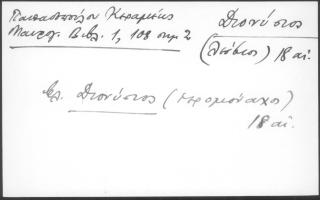 Παπαδοπούλου Κεραμέως
Μαυρογ. Βιβλ. 1, 108 σημ 2
Διονύσιος
(Λέσβιος) 18 αἰ.
βλ. Διονύσιος (ἱερομόναχος)
18 αἰ.